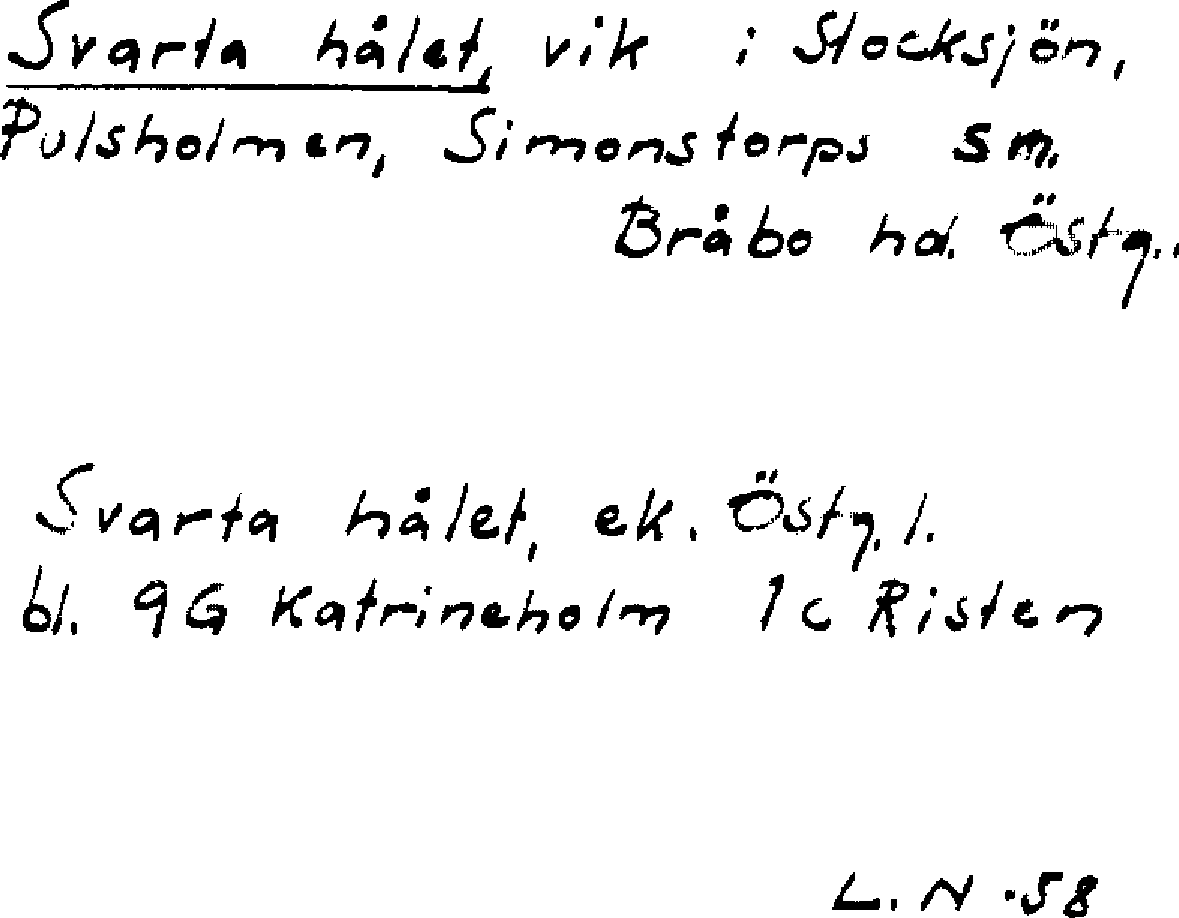 Svarta hålet, vik i Stocksjön,
Pulsholmen, Simonstorps sm.
Bråbo hd. Östg..
Svarta hålet, ek. Östg. l.
bl. 9G Katrineholm 1c Risten
L. N. 58